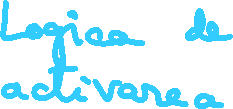 Logica de
activarea